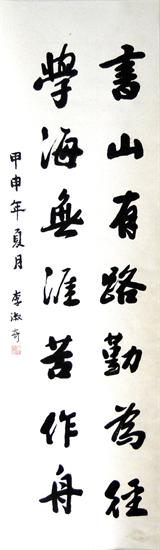 書山有路勤為徑
學海無涯苦作舟
甲申年夏月 李淑奇